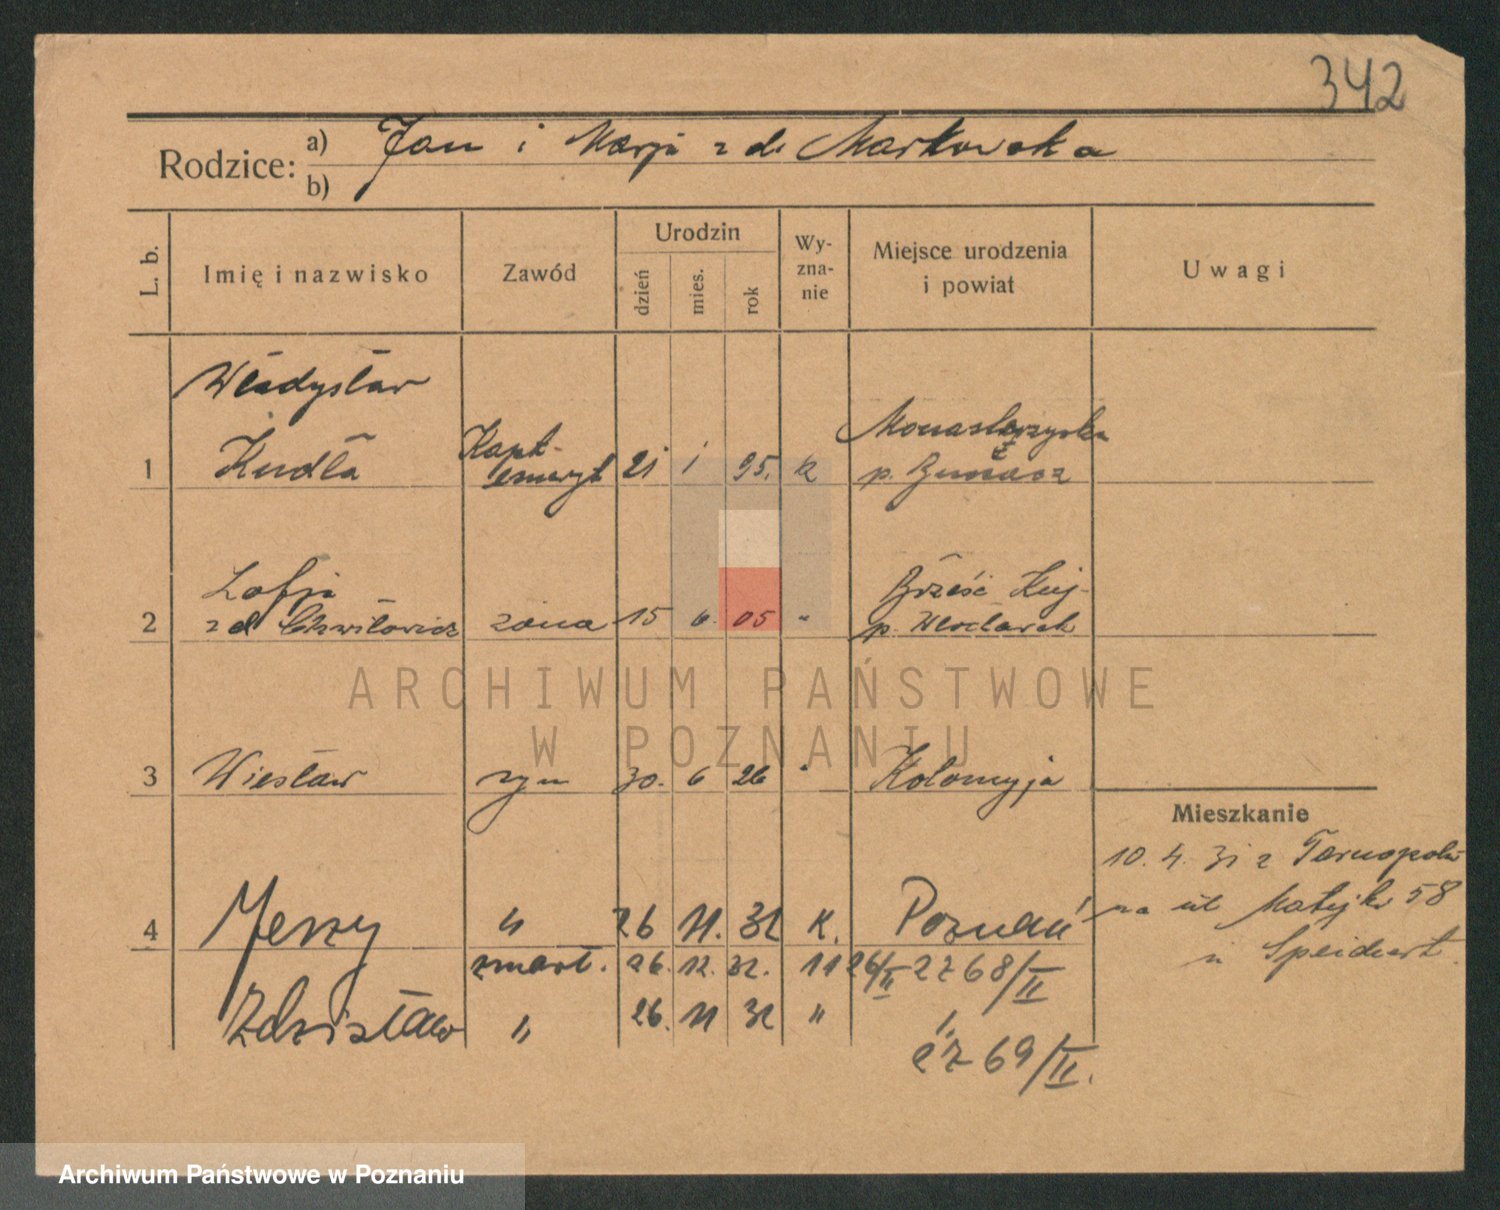 342
Rodzice: a) Jan i Marja z d. Markowska
b)
L. b. Imię i nazwisko Zawód Urodzin dzień mies. rok Wyznanie Miejsce urodzenia i powiat Uwagi
Władysław
1 Kudła Kapt. emeryt 21 1 95. k Monasterzyska
p. Buczacz
Zofja Brześć Kuj.
2 z d. żona 15 6. 05 " p. Włocławek
3 Wiesław syn 30. 6 26 " Kołomyja
Mieszkanie
10. 4. 31 z Tarnopola
na ul Matejki 58
u Speichert.
4 Jerzy " 26 11. 32 K. Poznań
zmarł. 26. 12. 32. 11 26/II 2268/II
Zdzisław " 26. 11 32 " "
2269/II.
ARCHIWUM PAŃSTWOWE
W POZNANIU
Archiwum Państwowe w Poznaniu